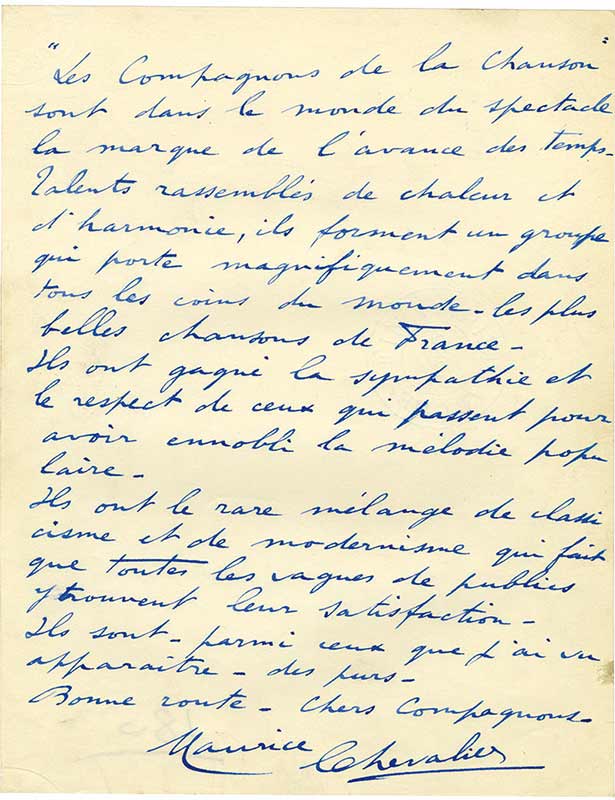 "Les Compagnons de la Chanson"
sont dans le monde du spectacle
la marque de l'avance des temps-
Talents rassemblés de chaleur et
d'harmonie, ils forment un groupe
qui porte magnifiquement dans
tous les coins du monde - les plus
belles chansons de France -
Ils ont gagné la sympathie et
le respect de ceux qui passent pour
avoir ennobli la mélodie popu
laire -
Ils ont le rare mélange de classi
cisme et de modernisme qui fait
que toutes les vagues de publics
y trouvent leur satisfaction -
Ils sont - parmi ceux que j'ai vu
apparaitre - des purs -
Bonne route - Chers Compagnons -
Maurice Chevalier